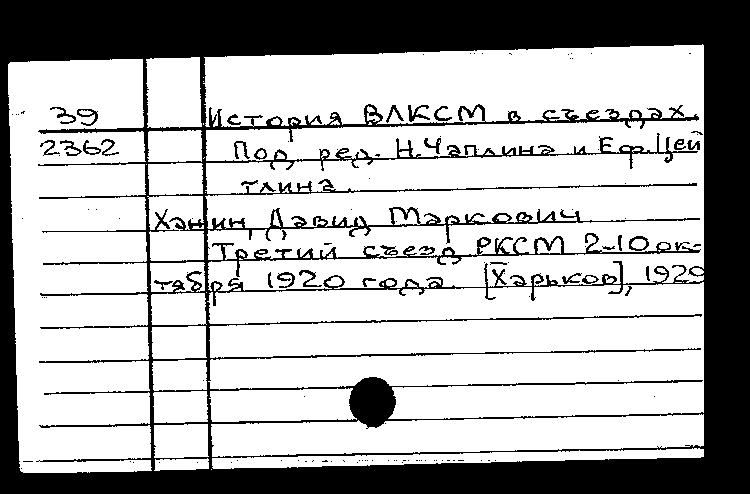 39 История ВЛКСМ в съездах.
2362 Под ред. Н.Чаплина и Еф.Цей
тлина.
Ханин, Давид Маркович.
Третий съезд РКСМ 2-10 ок-
тября 1920 года. [Харьков], 1929